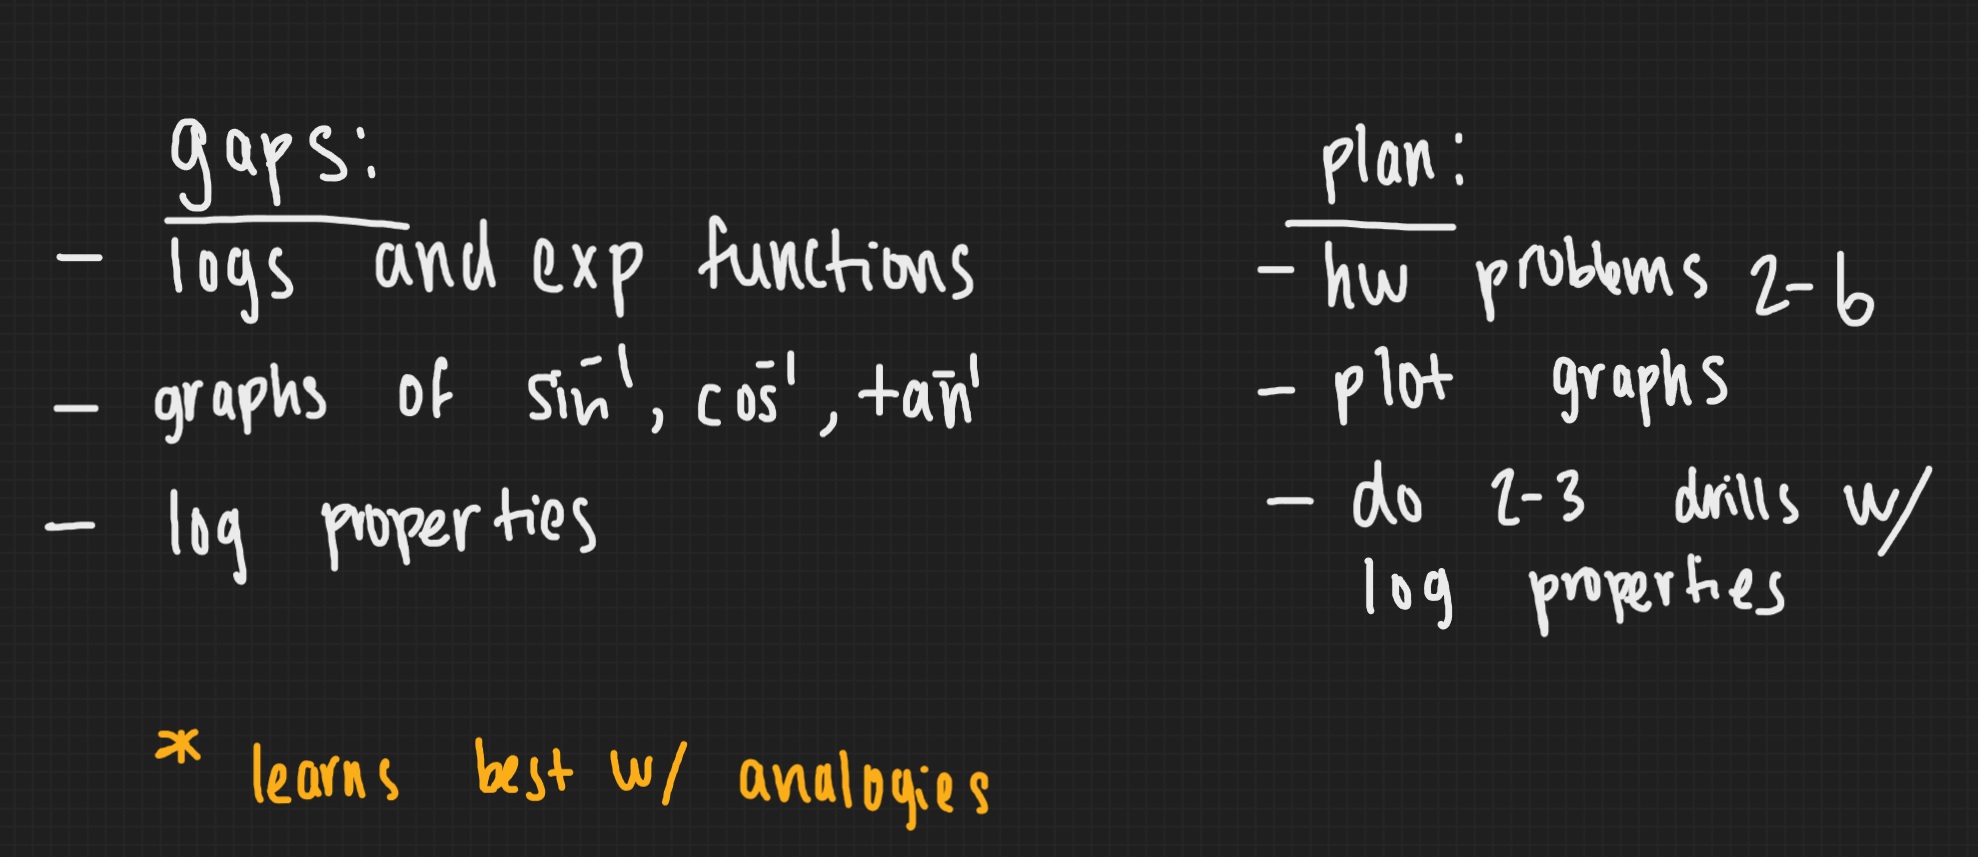 gaps:
- logs and exp functions
- graphs of sin⁻¹, cos⁻¹, tan⁻¹
- log properties
* learns best w/ analogies
plan:
- hw problems 2-6
- plot graphs
- do 2-3 drills w/
log properties